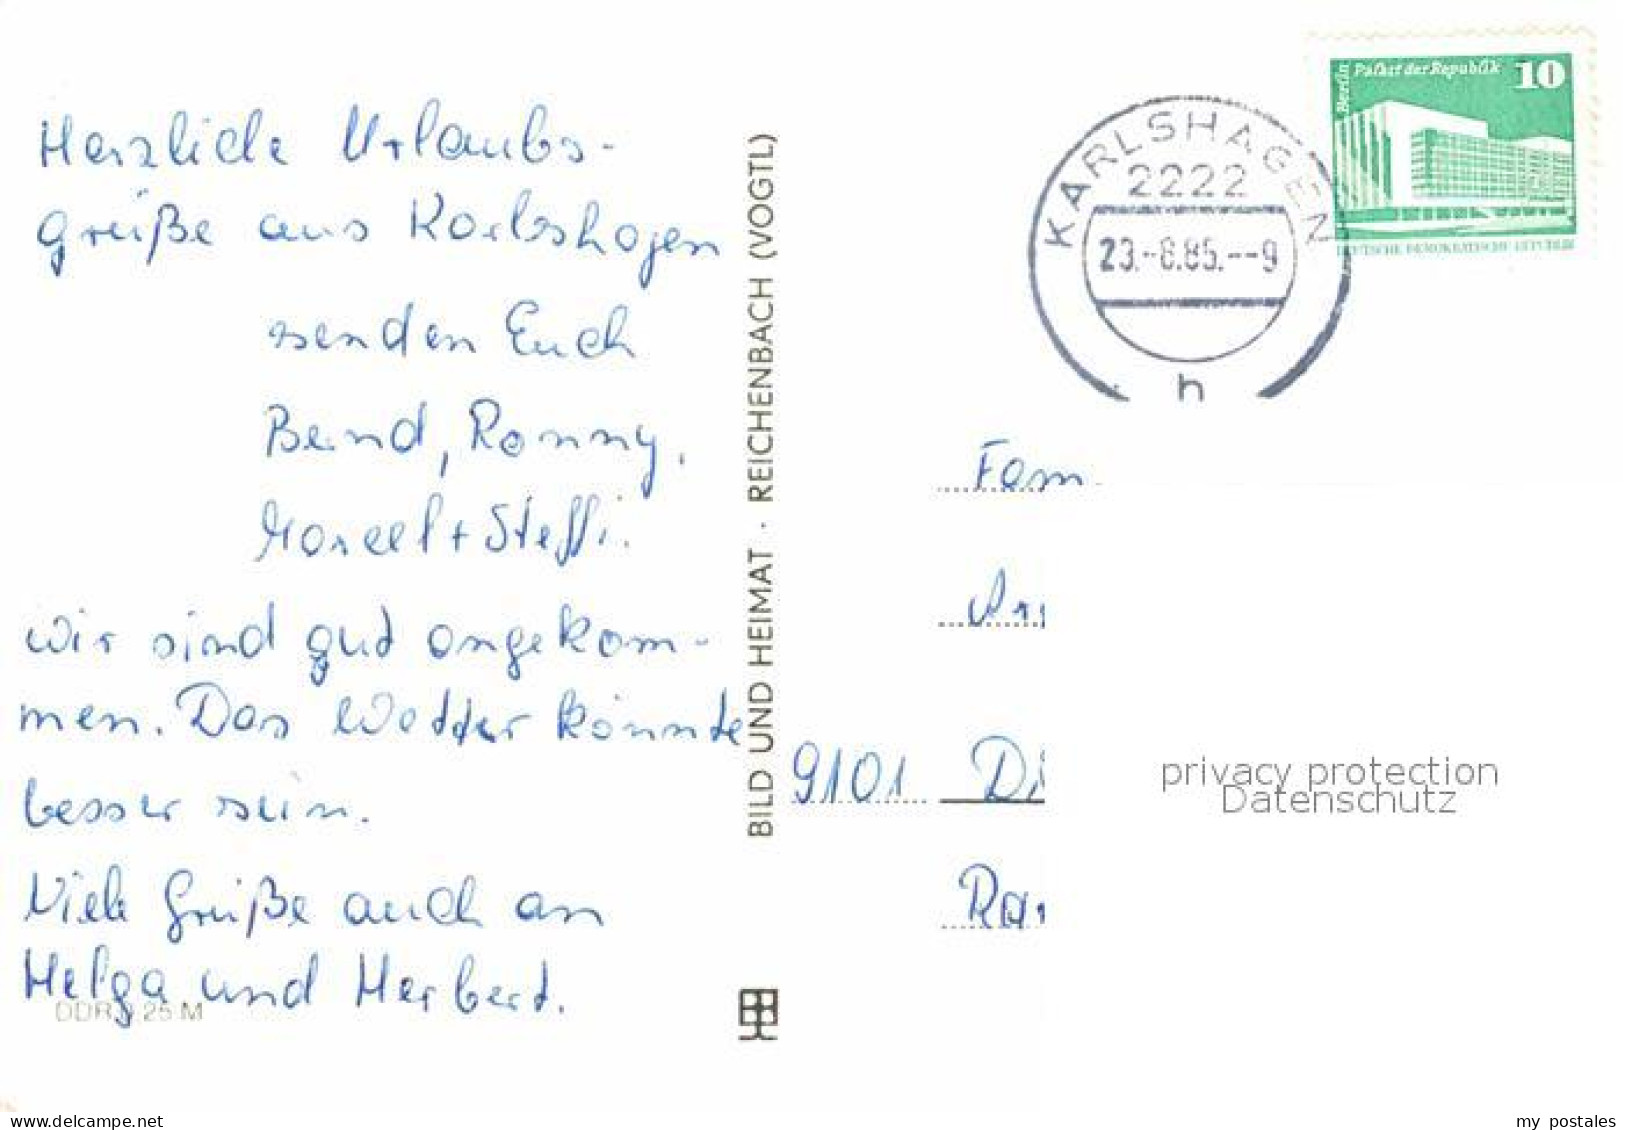 Herzliche Urlaubs-
grüße aus Karlshagen
senden Euch
Bernd, Ronny,
Marcel + Steffi.
Wir sind gut angekom-
men. Das Wetter könnte
besser sein.
Viele Grüße auch an
Helga und Herbert.
DDR 0,25 M
BILD UND HEIMAT · REICHENBACH (VOGTL)
KARLSHAGEN
2222
23.-8.85.--9
h
Berlin
Palast der Republik
10
DEUTSCHE DEMOKRATISCHE REPUBLIK
Fam.
9101 Di
privacy protection
Datenschutz
delcampe.net
my_postales